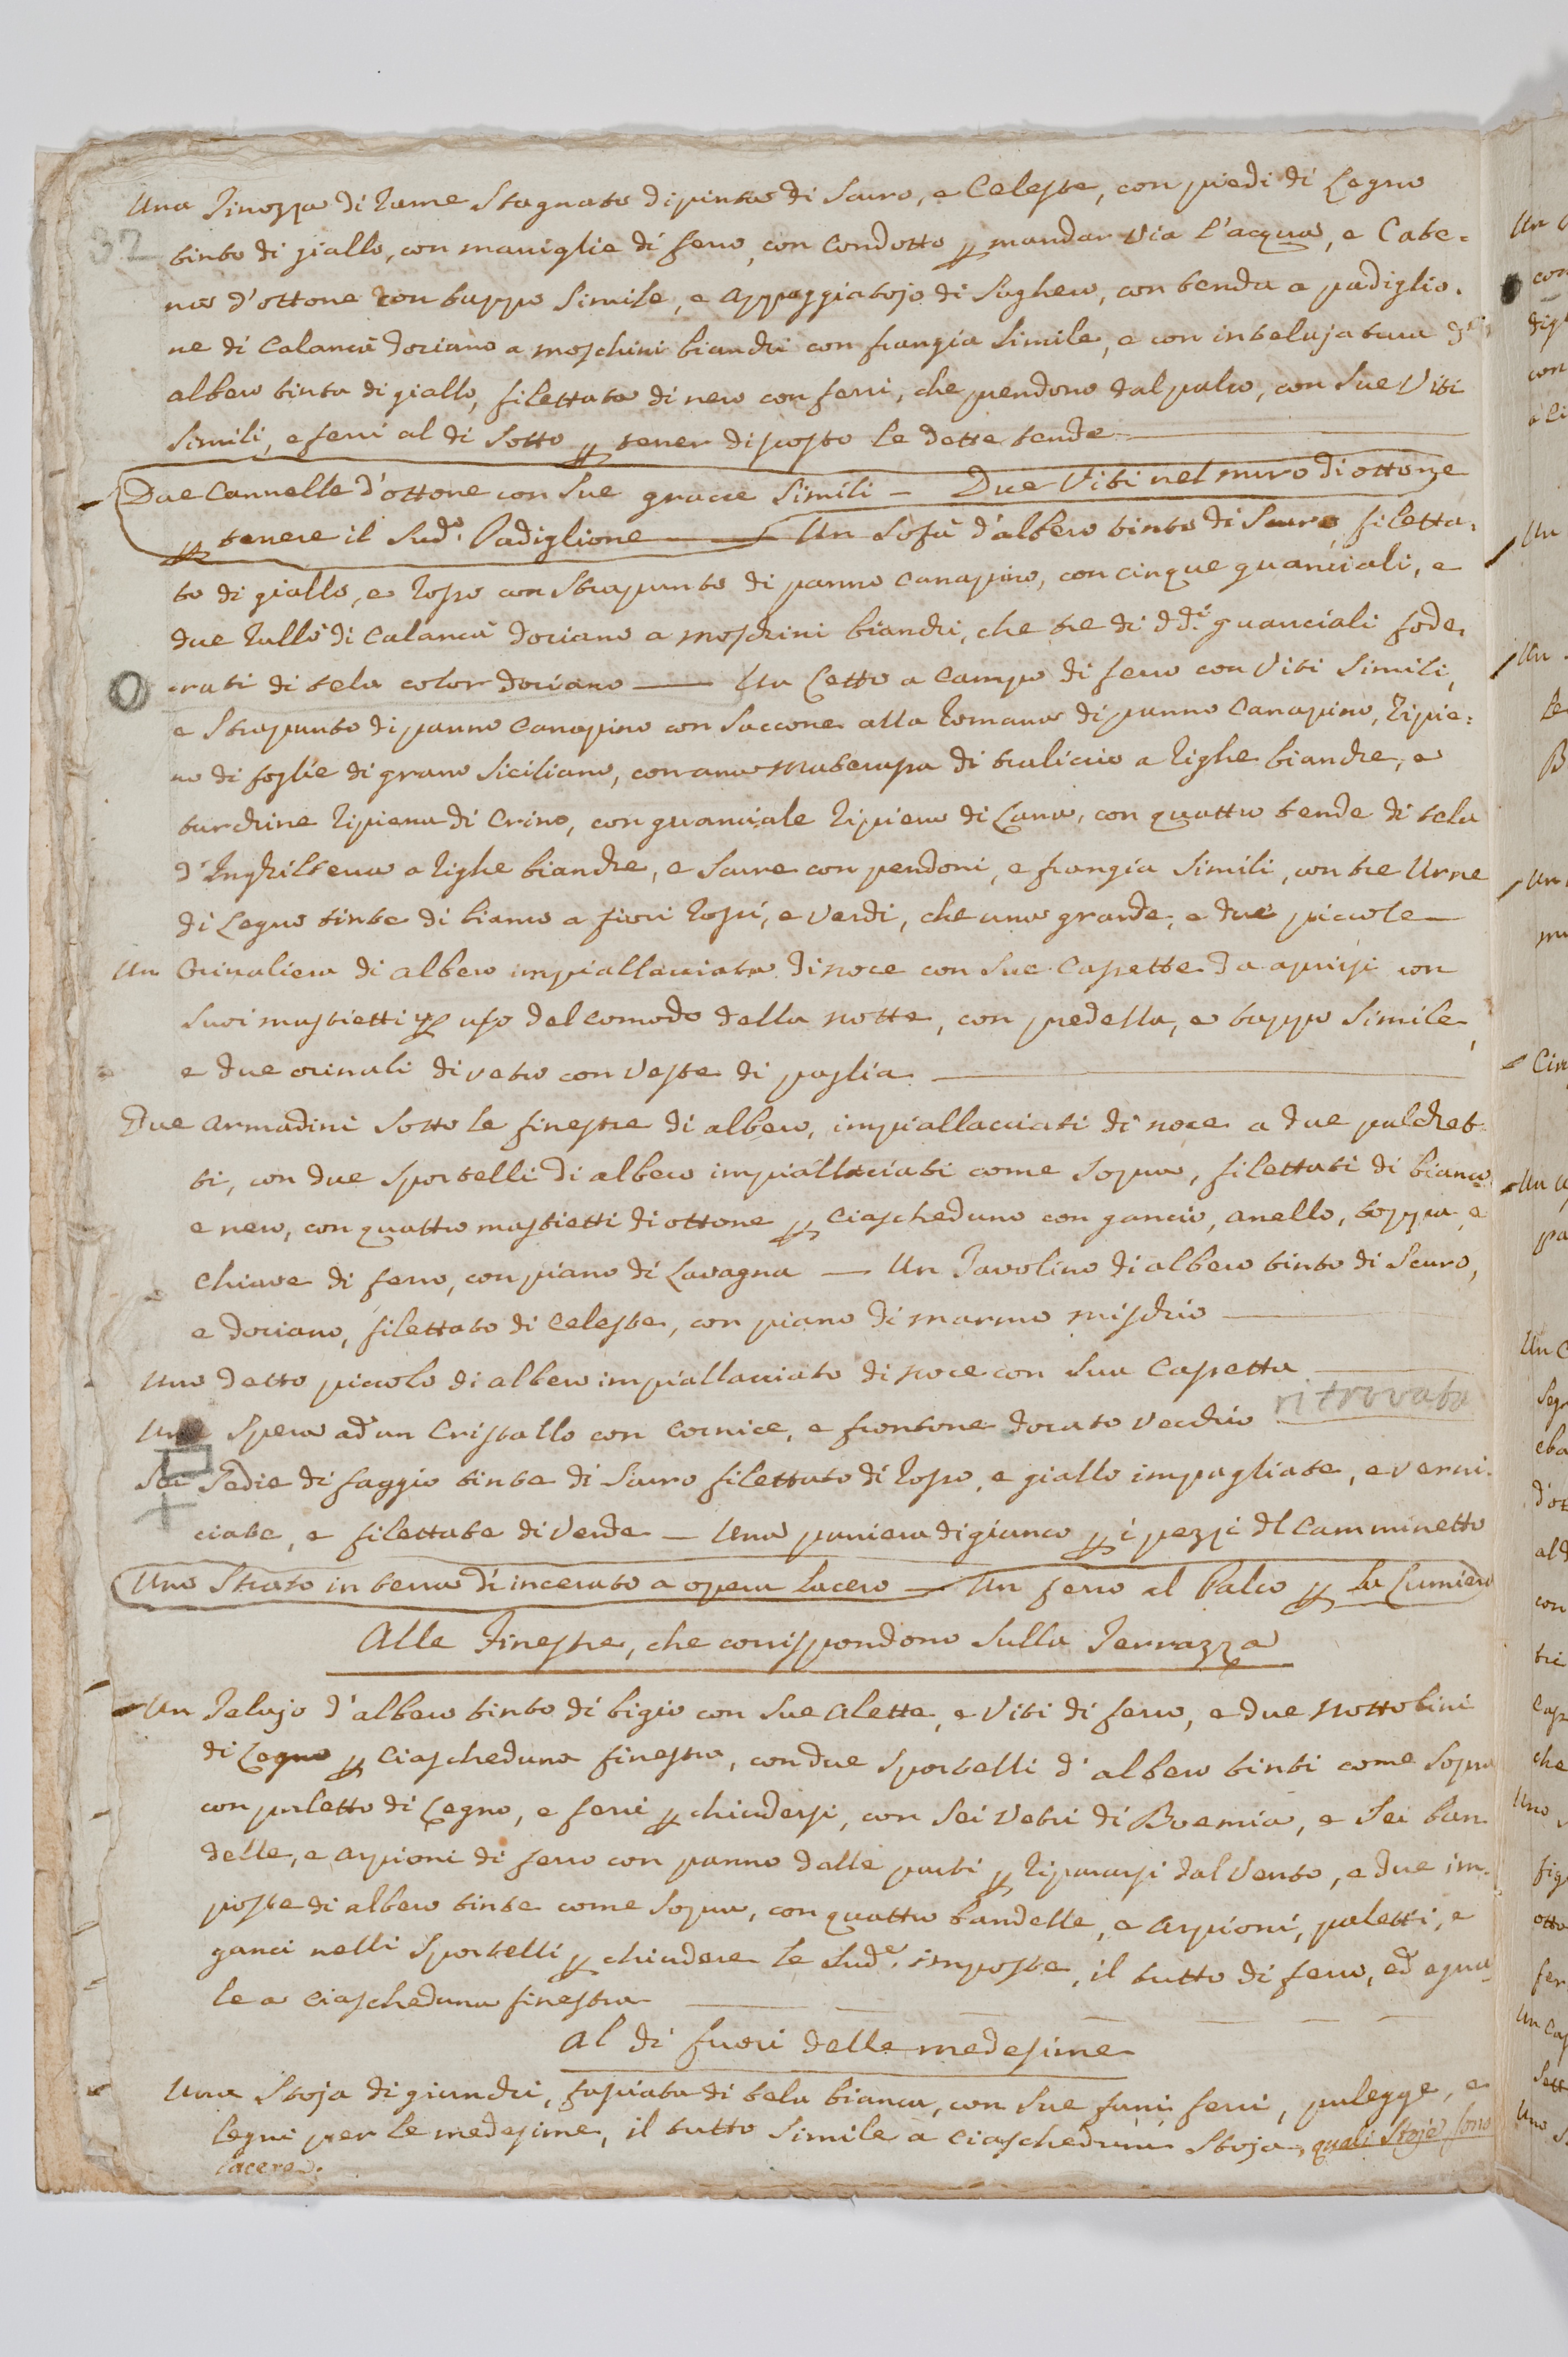 Una Tinozza di rame stagnato dipinta di scuro, e Celeste, con piedi di Legno
32
tinto di giallo, con maniglie di ferro, con Condotto p mandar via l'acqua, e Cate=
na d'ottone con tappo simile, e appoggiatojo di sughero, con tenda a padiglio.
ne di Calancà dorciano a moschini bianchi con frangia simile, e con intelajatura
albero tinta di giallo, filettata di nero con ferri, che prendono dal palco, con sue Viti
simili, e ferri al di sotto p tener discosto le dette tende
Due Cannelle d'ottone con sue gracce simili — Due Viti nel muro di ottone
p tenere il sud.o Padiglione — Un Sofà d'albero tinto di scuro, filetta.
to di giallo, e rosso con strapunto di panno canapino, con cinque guanciali, e
due rulli di Calancà dorciano a moschini bianchi, che tre di dd.i guanciali fode.
rati di tela color dorciano — Un Letto a Campo di ferro con Viti simili,
e strapunto di panno canapino con saccone alla romana di panno Canapino, ripie=
no di foglie di grano siciliano, con una materassa di traliccio a righe bianche, e
turchine ripiena di Crino, con guanciale ripieno di Lana, con quattro tende di tela
d'Inghilterra a righe bianche, e scure con pendoni, e frangia simili, con tre Urne
di Legno tinte di bianco a fiori rossi, e verdi, che una grande, e due piccole
Un Orinaliera di albero impiallacciata di noce con sue Cassette da aprirsi con
suoi mastietti p uso del comodo della notte, con predella, e tappo simile,
e due orinali di vetro con veste di paglia
Due Armadini sotto le finestre di albero, impiallacciati di noce a due palchet-
ti, con due sportelli di albero impiallacciati come sopra, filettati di bianco
e nero, con quattro mastietti di ottone p ciascheduno con gancio, anello, toppa, e
Chiave di ferro, con piano di Lavagna — Un Tavolino di albero tinto di scuro,
e dorciano, filettato di Celeste, con piano di marmo mischio
Uno detto piccolo di albero impiallacciato di noce con sua Cassetta
Una Spera ad un Cristallo con Cornice, e frontone dorato vecchio ritrovata
Sei Sedie di faggio tinte di scuro filettato di rosso, e giallo impagliate, e verni.
ciate, e filettate di verde — Una paniera di giunco p i pezzi del Camminetto
Uno Strato in terra di incerato a opera lacero — Un ferro al Palco p la Lumiera
Alle Finestre, che corrispondono sulla Terrazza
Un Telajo d'albero tinto di bigio con sue alette, e Viti di ferro, e due nottolini
di Legno p ciascheduna finestra, con due sportelli d'albero tinti come sopra
con paletto di Legno, e ferri p chiudersi, con sei vetri di Boemia, e sei ban.
delle, e arpioni di ferro con panno dalle parti p ripararsi dal vento, e due im.
poste di albero tinte come sopra, con quattro bandelle, e arpioni, paletti, e
ganci nelli sportelli p chiudere le sud.e imposte, il tutto di ferro, ed egua
le a ciascheduna finestra
Al di fuori delle medesime
Una Stoja di giunchi, fasciata di tela bianca, con sue funi, ferri, pulegge, e
legni per le medesime, il tutto simile a ciascheduna Stoja, quali Stoje sono
lacere.